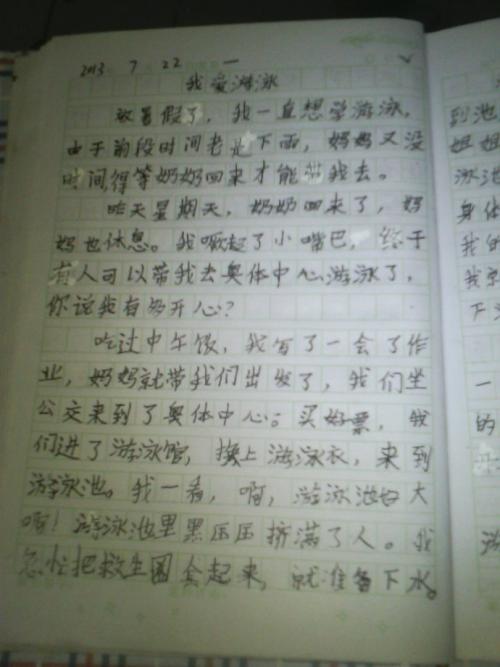 2013 7 22 一
我爱游泳
放暑假了，我一直想学游泳，
由于前段时间老是下雨，妈妈又没
时间得等奶奶回来才能带我去。
昨天星期天，奶奶回来了，妈
妈也休息。我噘起了小嘴巴，终于
有人可以带我去奥体中心游泳了，
你说我有多开心？
吃过中午饭，我写了一会了作
业，妈妈就带我们出发了，我们坐
公交来到了奥体中心。买好票，我
们进了游泳馆，换上游泳衣，来到
游泳池。我一看，啊，游泳池好大
啊！游泳池里黑压压挤满了人。我
急忙把救生圈套起来，就准备下水。
到池
姐姐
泳池
身体
我的
我京
下
一
的
游